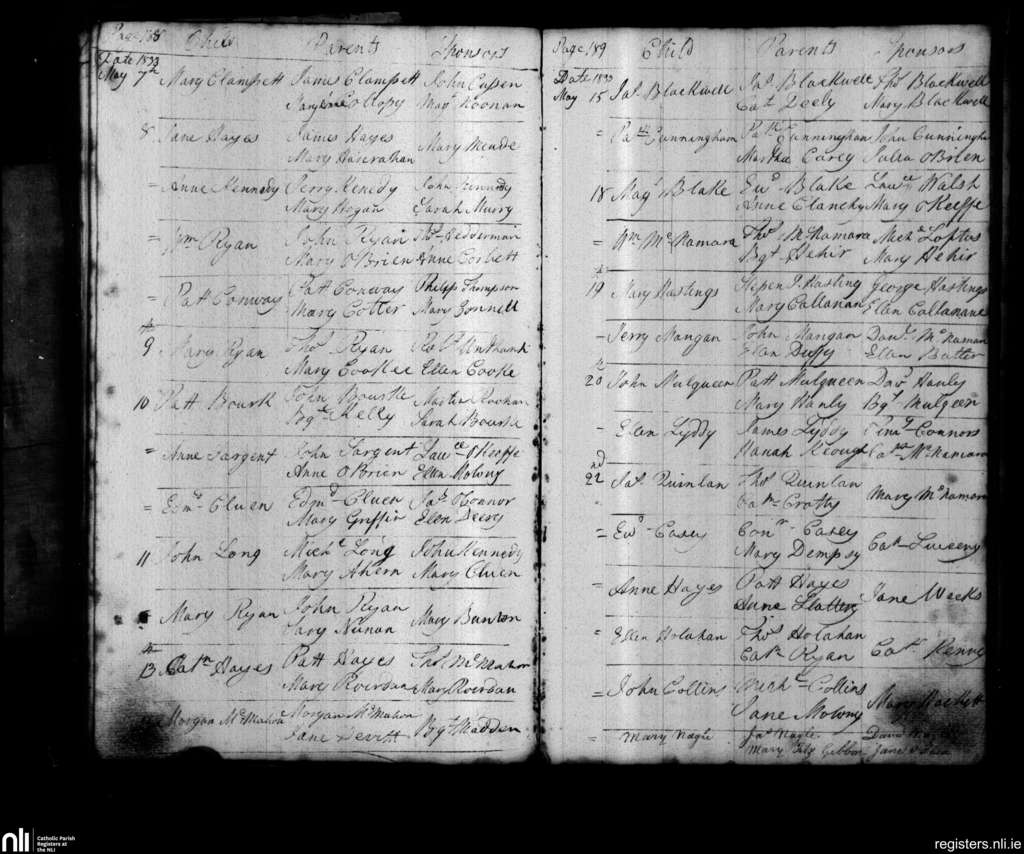 Page 188 Child Parents Sponsors
Date 1833
May 7th Mary Clampett James Clampett John Cusen
Collopy Magt Noonan
8 Jane Hayes James Hayes Mary Meade
Mary Hanrahan
= Anne Kennedy Terry Kenedy John Kennedy
Mary Hogan Sarah Murry
= Wm Ryan John Ryan Thos Hedderman
Mary O'Brien Anne Corbett
= Patt Conway Patt Conway Philip Thompson
Mary Cotter Mary Connell
th
9 Mary Ryan Thos Ryan Robt Unthank
Mary Cookee Ellen Cooke
10 Patt Bourk John Bourke Roohan
Bgt Kelly Sarah Bourke
= Anne Sargent John Sargent Lawce O'Keeffe
Anne O'Brien Ellen Molony
= Edmd Cluen Edmd Cluen Jas O'Connor
Mary Griffin Ellen Deery
11 John Long Michl Long John Kennedy
Mary Ahern Mary Cluen
Mary Ryan John Ryan Mary Bunton
Mary Nunan
th
13 Cathn Hayes Patt Hayes Thos McMahon
Mary Rierdan Mary Rierdan
Morgan McMahon Morgan McMahon Bgt Madden
Jane Devitt
Page 189 Child Parents Sponsors
Date 1833
May 15 Jas Blackwell Jas Blackwell Thos Blackwell
Cat Deely Mary Blackwell
= Patk Cunningham Patk Cunningham John Cunningham
Martha Carey Julia O'Brien
18 Magt Blake Ewd Blake Lawce Walsh
Anne Clanchy Mary O'Keeffe
= Wm McNamara Thos McNamara Michl Loftus
Bgt Hehir Mary Hehir
th
19 Mary Hastings Stepen J. Hasting George Hastings
Mary Callanan Ellen Callanane
– Jerry Mangan John Mangan Danl McNamar
Ellen Duffy Ellen Butter
th
20 John Mulqueen Patt Mulqueen Davd Hanly
Mary Hanly Bgt Mulqeen
– Ellen Lyddy James Lyddy Timy Connors
Hanah Keough Cath McNamara
nd
22 Jas Quinlan Thos Quinlan Mary McNamara
Cathn Crotty
= Ewd Casey Conr Casey Cathn
Mary Dempsy
= Anne Hayes Patt Hayes Jane Weeks
Anne Slattery
= Ellen Holahan Thos Holahan Cath Kenny
Cathn Ryan
= John Collins Michl Collins Mary Hackett
Jane Molony
= Mary Nagle Jas Nagle David
Mary Fitz Gibbon Jane
nli Catholic Parish
Registers at
the NLI
registers.nli.ie